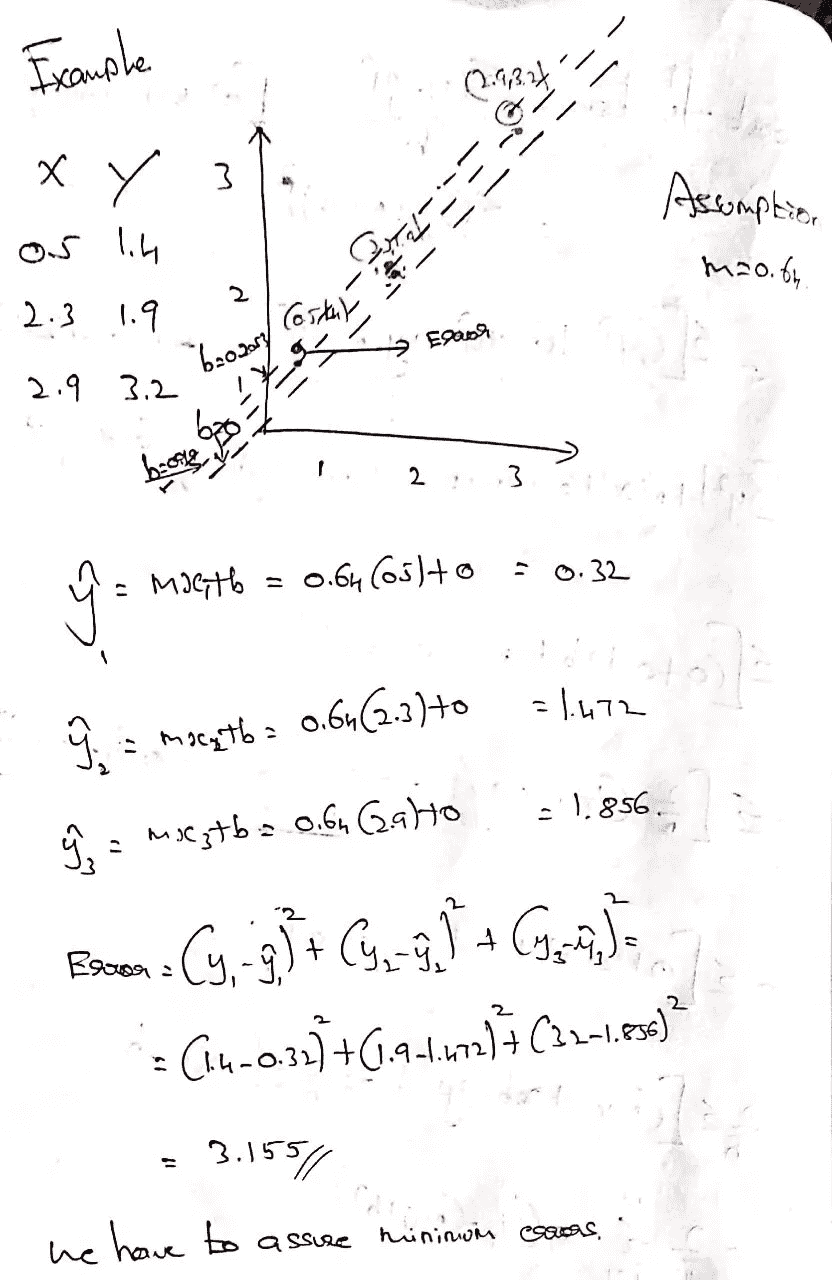 Example
X Y
0.5 1.4
2.3 1.9
2.9 3.2
3
2
1
(2.9,3.2)
Error
b=0
1 2 3
Assumption
m=0.64
ŷ₁ = mx₁+b = 0.64(0.5)+0 = 0.32
ŷ₂ = mx₂+b = 0.64(2.3)+0 = 1.472
ŷ₃ = mx₃+b = 0.64(2.9)+0 = 1.856
Error = (y₁-ŷ₁)² + (y₂-ŷ₂)² + (y₃-ŷ₃)² =
= (1.4-0.32)² + (1.9-1.472)² + (3.2-1.856)²
= 3.155//
we have to assure minimum errors.